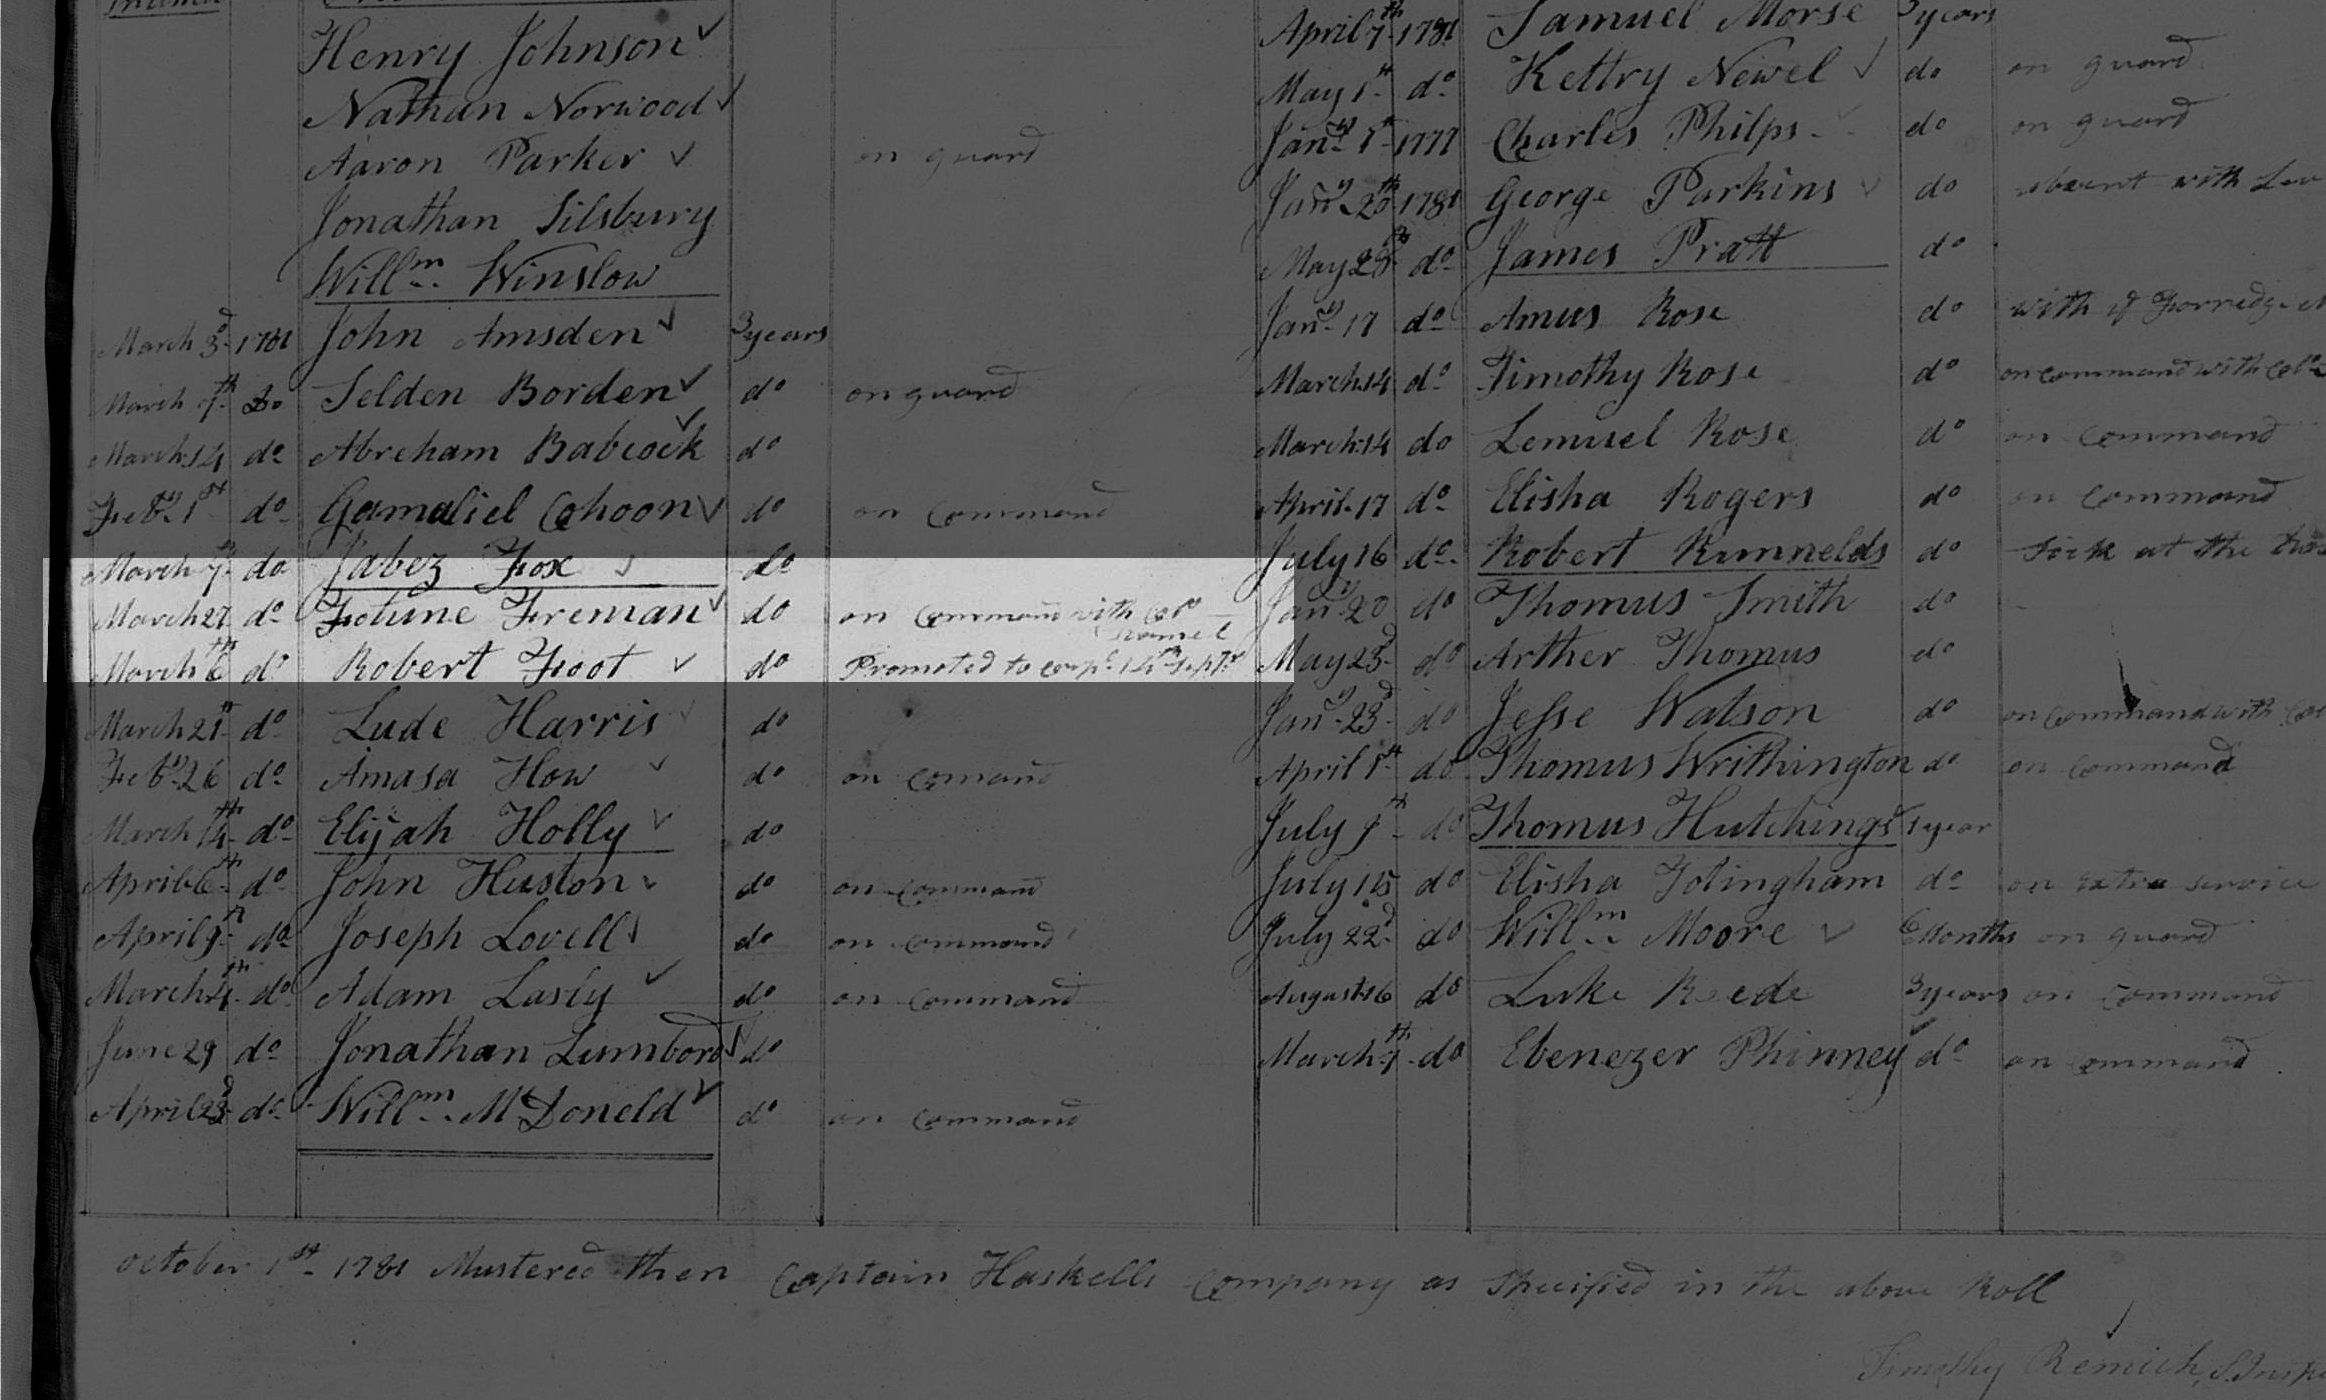 Henry Johnson
Nathan Norwood
Aaron Parker on guard
Jonathan Silsbury
Willm. Winslow
March 3d 1781 John Amsden 3 years
March 7th Do Selden Borden do on guard
March 14 do Abreham Babcock do
Feby 1st do Gamaliel Cohoon do on Command
March 7th do Jabez Fox do
March 27 do Fotune Freman do on Command with Colo
March 6th do Robert Foot do Promoted to corpl. 14th Sept.
March 21st do Lude Harris do
Feby 26 do Amasa How do on comand
March 14th do Elijah Holly do
April 6th do John Huston do on command
April 9th do Joseph Lovell do on command
March 4th do Adam Lasly do on command
June 29 do Jonathan Lumbord do
April 23d do Willm. McDoneld do on command
April 7th 1781 Samuel Morse 3 years
May 1st do Kettry Newel do on guard
Jany 1st 1777 Charles Philps do on guard
Jany 20th 1781 George Parkins do absent with
May 28th do James Pratt do
Jany 17 do Amus Rose do with ye
March 14 do Timothy Rose do on command with Colo
March 14 do Lemuel Rose do on Command
April 17 do Elisha Rogers do on Command
July 16 do Robert Runnelds do Sick at the
Jany 20 do Thomus Smith do
May 23d do Arther Thomus do
Jany 23d do Jesse Watson do on Command with
April 1st do Thomus Writhington do on command
July do Thomus Hutchings 1 year
July 15 do Elisha Totingham do on extra service
July 22d do Willm. Moore 6 Months on guard
August 16 do Luke Reede 3 years on command
March 7th do Ebenezer Phinney do on command
October 1st 1781 Mustered then Captain Haskells Company as Specified in the above Roll
Timothy Remich